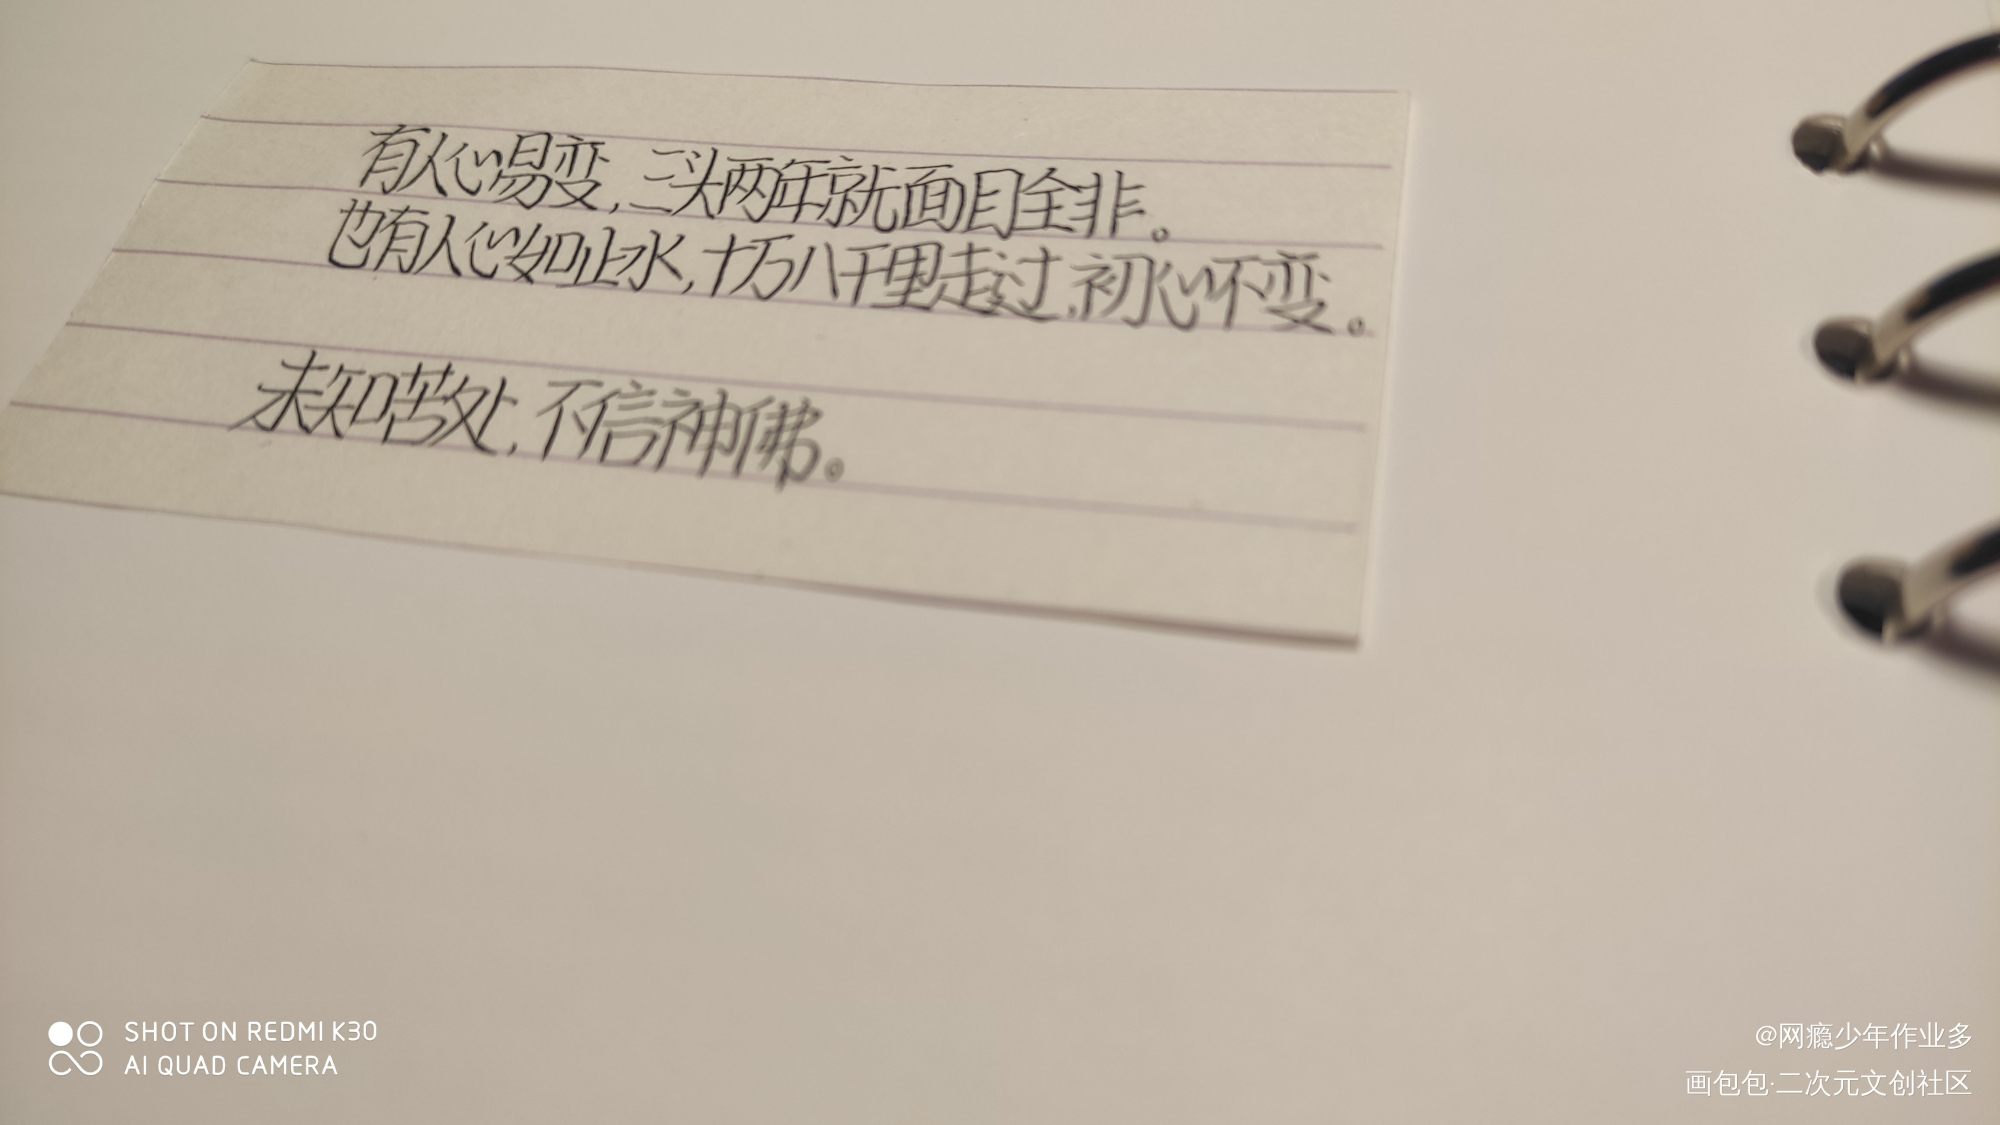 有人心易变,三头两年就面目全非。
也有人心如止水,十万八千里走过,初心不变。
未知苦处,不信神佛。
SHOT ON REDMI K30
AI QUAD CAMERA
@网瘾少年作业多
画包包·二次元文创社区